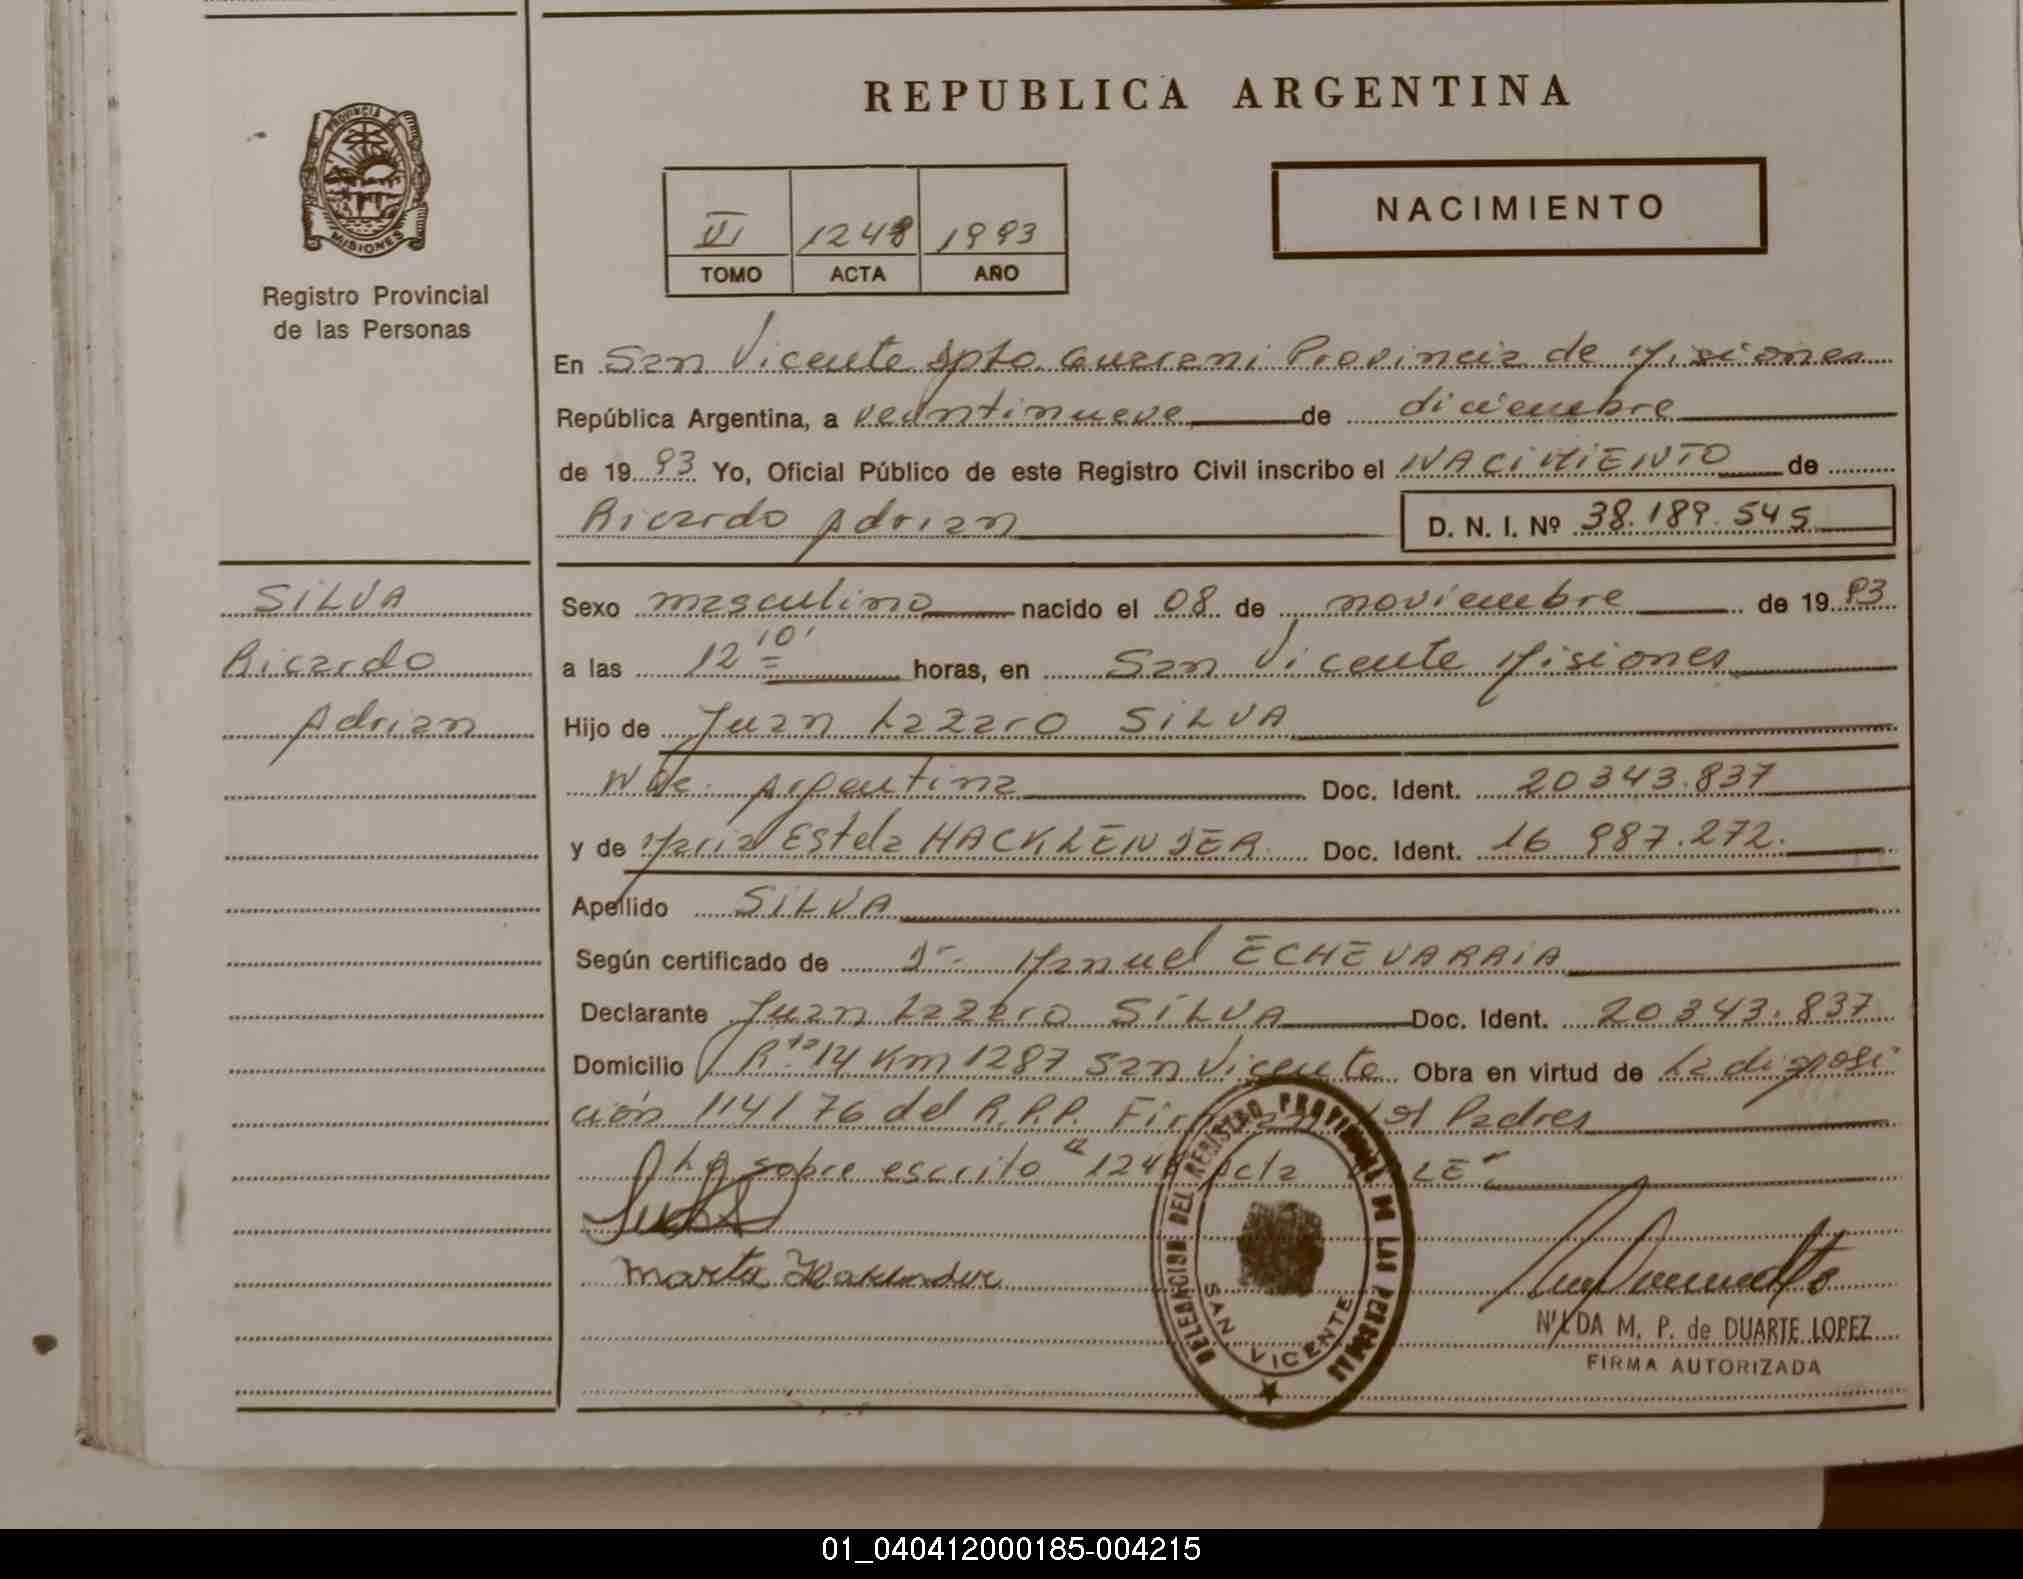 REPUBLICA ARGENTINA
PROVINCIA DE
MISIONES
Registro Provincial
de las Personas
VI 1248 1993
TOMO ACTA AÑO
NACIMIENTO
En San Vicente Dpto Guarani Provincia de Misiones
República Argentina, a veintinueve de diciembre
de 1993 Yo, Oficial Público de este Registro Civil inscribo el NACIMIENTO de
Ricardo Adrian D. N. I. Nº 38.189.545
SILVA
Ricardo
Adrian
Sexo masculino nacido el 08 de noviembre de 1993
a las 12 10' horas, en San Vicente Misiones
Hijo de Juan Lazaro SILVA
Nac. Argentina Doc. Ident. 20 343.837
y de Maria Estela HACKLENDER Doc. Ident. 16 987.272.
Apellido SILVA
Según certificado de Dr. Manuel ECHEVARRIA
Declarante Juan Lazaro SILVA Doc. Ident. 20 343.837
Domicilio Rta. 14 Km 1287 San Vicente Obra en virtud de La disposi
ción 114/76 del R.P.P. Firman los Padres
Lo sobre escrito "1248 Acta VALE"
Marta
DELEGACION DEL REGISTRO PROVINCIAL DE LAS PERSONAS
SAN VICENTE
NILDA M. P. de DUARTE LOPEZ
FIRMA AUTORIZADA
01_040412000185-004215